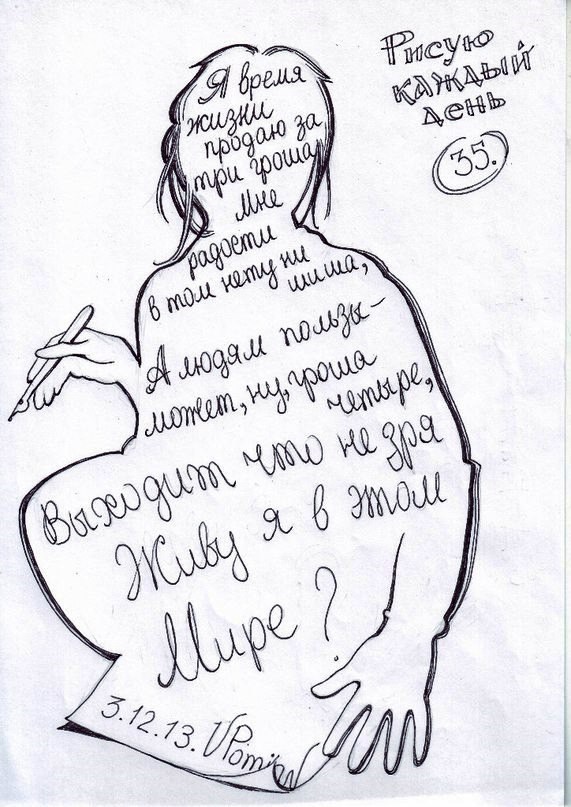 Рисую
каждый
день
35.
Я время
жизни
продаю за
три гроша
Мне
радости
в том нету ни
шиша,
А людям пользы –
может, ну, гроша
четыре,
Выходит что не зря
Живу я в этом
Мире?
3.12.13.